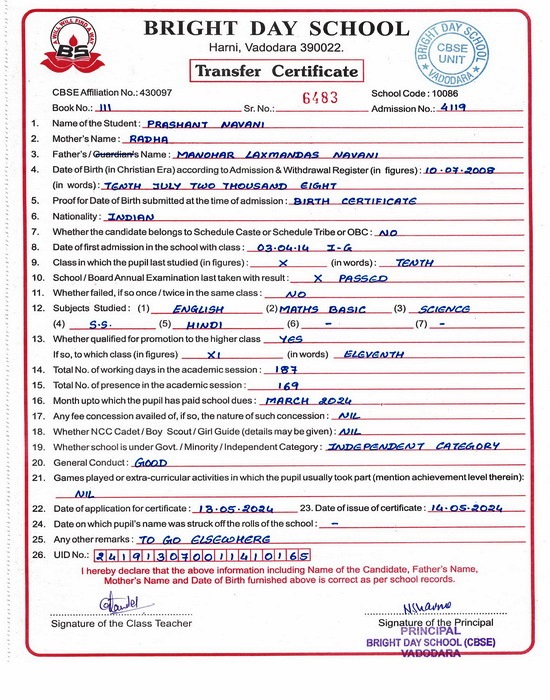 A WILL WILL FIND A WAY
BS
BRIGHT DAY SCHOOL
Harni, Vadodara 390022.
Transfer Certificate
BRIGHT DAY SCHOOL
CBSE
UNIT
VADODARA
CBSE Affiliation No.: 430097 School Code : 10086
Book No.: III Sr. No.: 6483 Admission No.: 4119
1. Name of the Student : PRASHANT NAVANI
2. Mother's Name : RADHA
3. Father's / Guardian's Name : MANOHAR LAXMANDAS NAVANI
4. Date of Birth (in Christian Era) according to Admission & Withdrawal Register (in figures) : 10-07-2008
(in words) : TENTH JULY TWO THOUSAND EIGHT
5. Proof for Date of Birth submitted at the time of admission : BIRTH CERTIFICATE
6. Nationality : INDIAN
7. Whether the candidate belongs to Schedule Caste or Schedule Tribe or OBC : NO
8. Date of first admission in the school with class : 03-04-14 I-G
9. Class in which the pupil last studied (in figures) : X (in words) : TENTH
10. School / Board Annual Examination last taken with result : X PASSED
11. Whether failed, if so once / twice in the same class : NO
12. Subjects Studied : (1) ENGLISH (2) MATHS BASIC (3) SCIENCE
(4) S.S. (5) HINDI (6) - (7) -
13. Whether qualified for promotion to the higher class YES
If so, to which class (in figures) XI (in words) ELEVENTH
14. Total No. of working days in the academic session : 187
15. Total No. of presence in the academic session : 169
16. Month upto which the pupil has paid school dues : MARCH 2024
17. Any fee concession availed of, if so, the nature of such concession : NIL
18. Whether NCC Cadet / Boy Scout / Girl Guide (details may be given) : NIL
19. Whether school is under Govt. / Minority / Independent Category : INDEPENDENT CATEGORY
20. General Conduct : GOOD
21. Games played or extra-curricular activities in which the pupil usually took part (mention achievement level therein):
NIL
22. Date of application for certificate : 13-05-2024 23. Date of issue of certificate : 14-05-2024
24. Date on which pupil's name was struck off the rolls of the school : -
25. Any other remarks : TO GO ELSEWHERE
26. UID No.: 241913070011410165
I hereby declare that the above information including Name of the Candidate, Father's Name,
Mother's Name and Date of Birth furnished above is correct as per school records.
Signature of the Class Teacher Signature of the Principal
PRINCIPAL
BRIGHT DAY SCHOOL (CBSE)
VADODARA